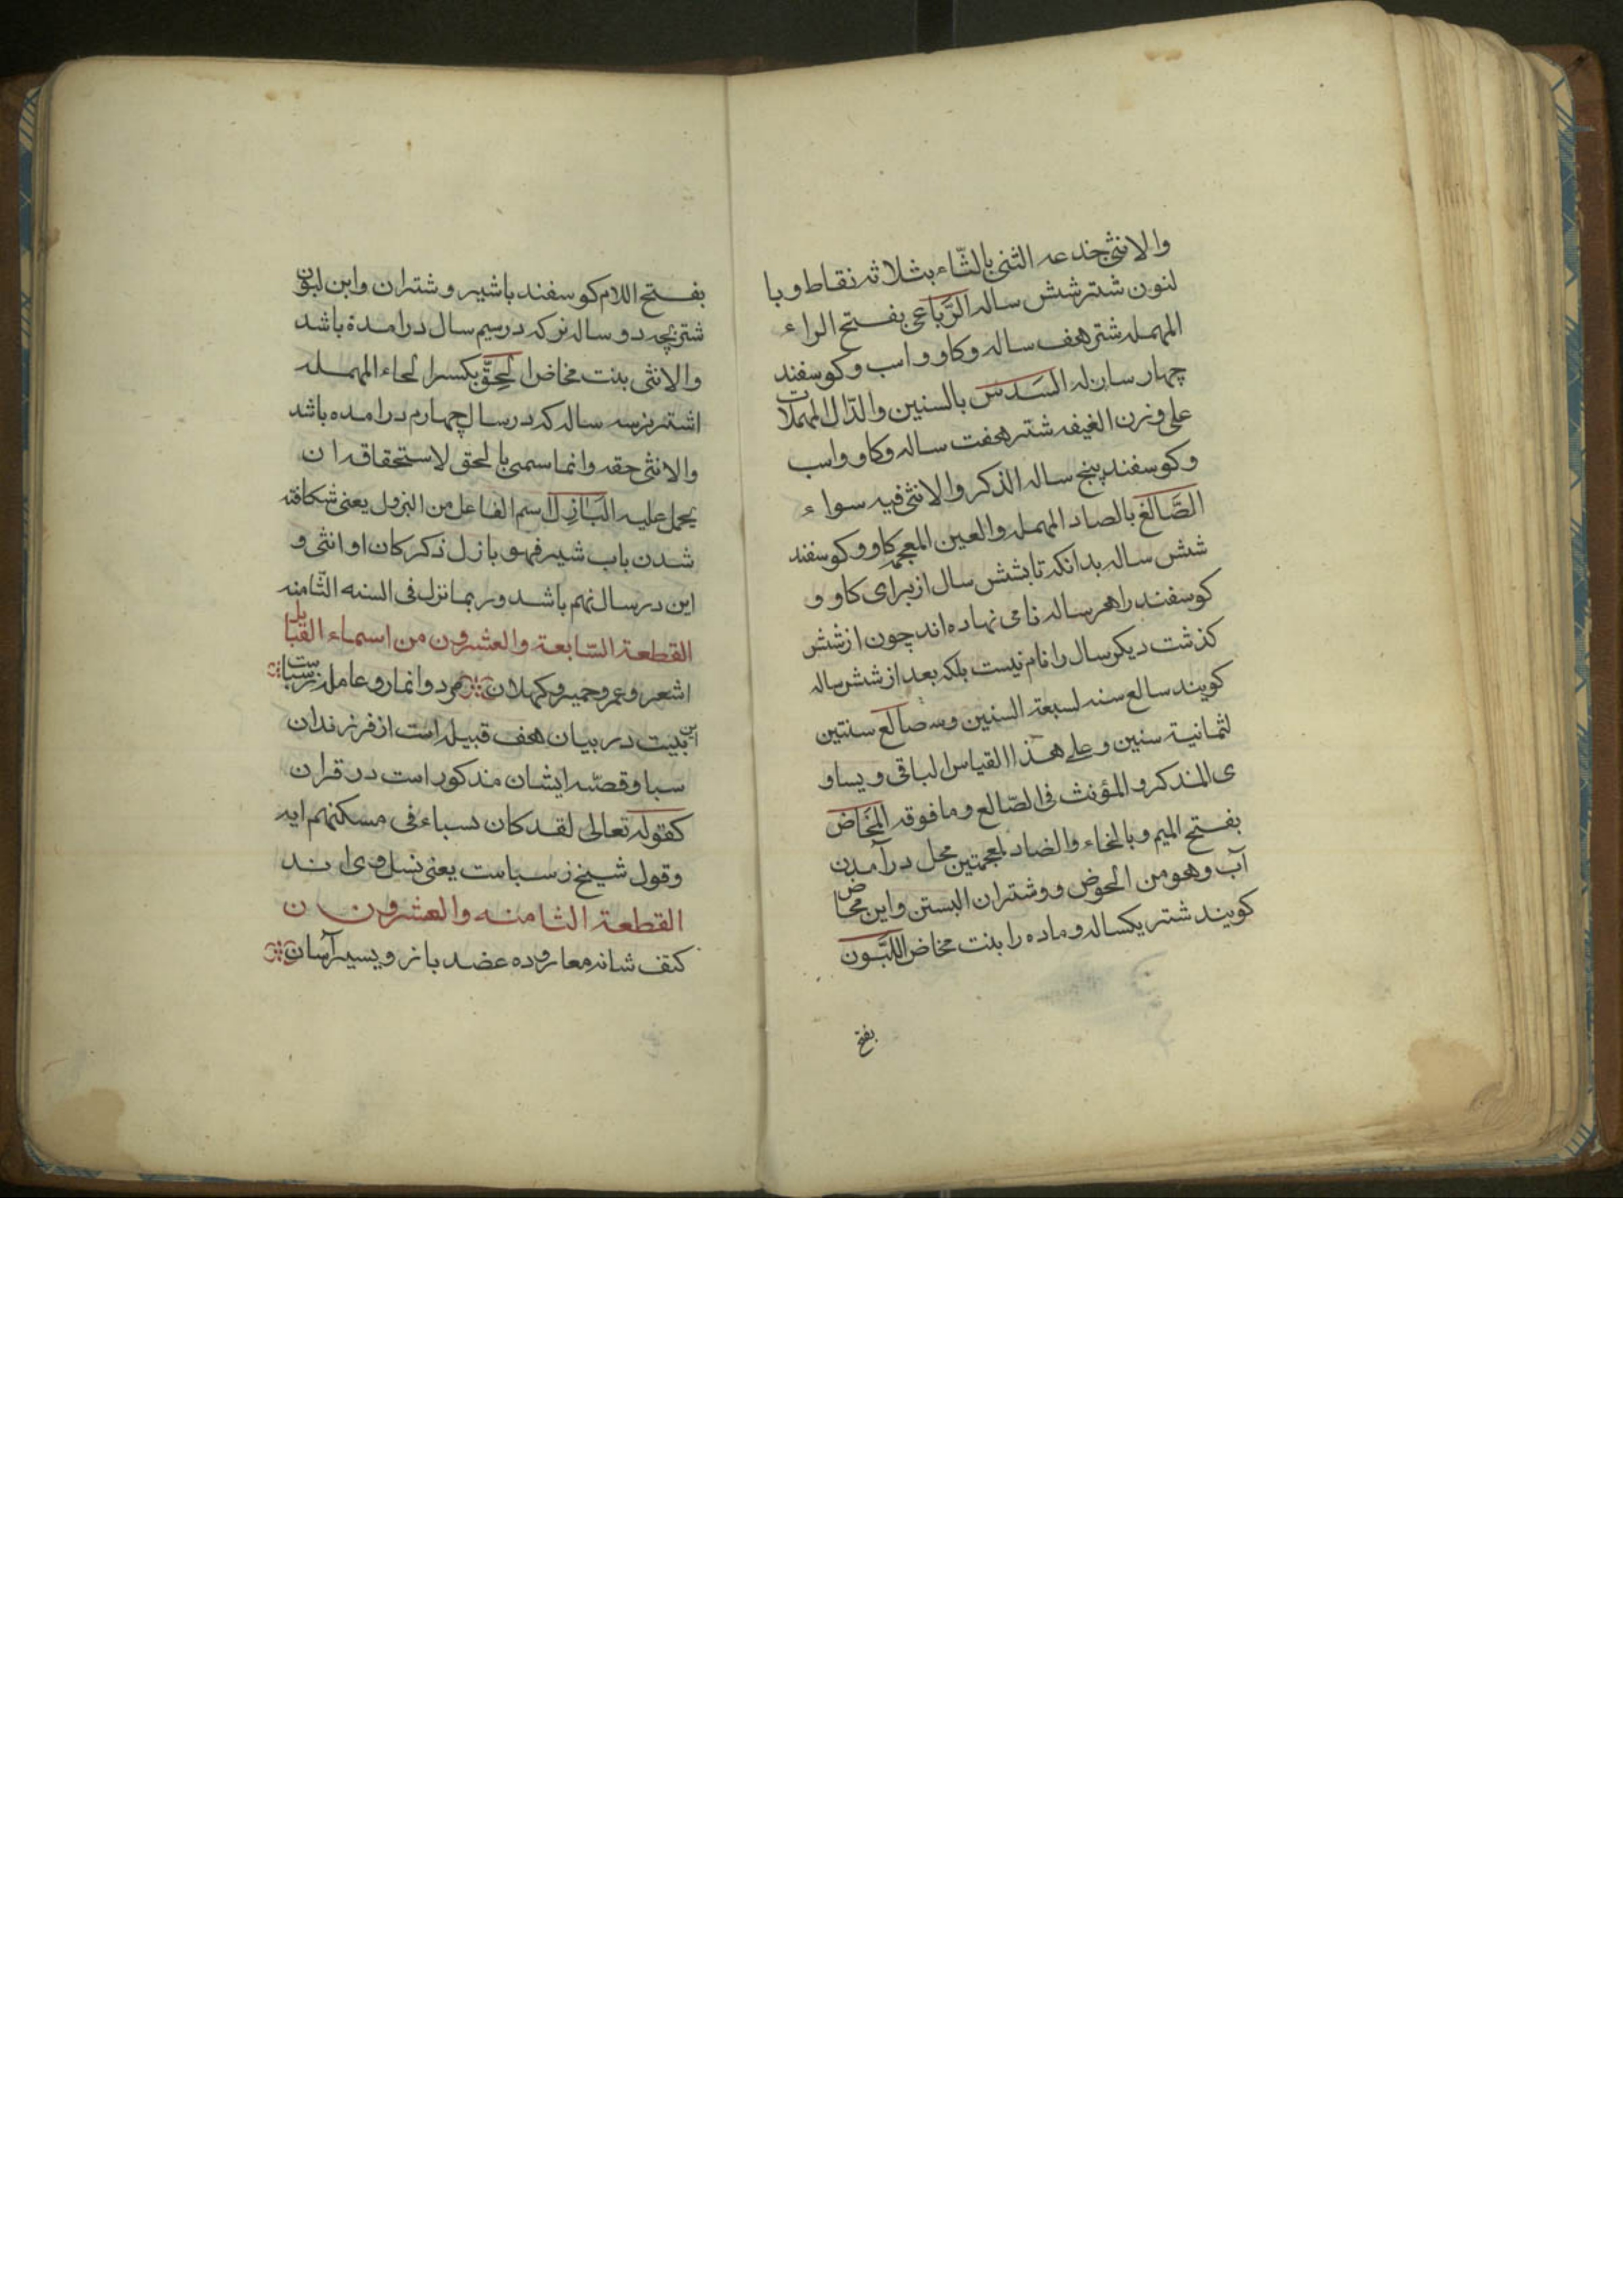 والانثی جذعه الثنی بالثّاء بثلاثه نقاط وبا
لنون شتر شش ساله الرَّباعی بفتح الراء
المهمله شتر هفت ساله وکاو واسب وکوسفند
چهار ساله السَدس بالسنین والدّال المهملات
علی وزن الغیفه شتر هفت ساله وکاو واسب
وکوسفند پنج ساله الذکر والانثی فیه سواء
الصَّالغ بالصاد المهمله والعین المعجمه کاو وکوسفند
شش ساله بدانکه تا بشش سال از برای کاو و
کوسفند را هر ساله نامی نهاده اند چون از شش
کذشت دیکر سال را نام نیست بلکه بعد از شش ساله
کویند سالع سنه لسبعة السنین وسه صالع سنتین
لثمانیة سنین وعلی هذا القیاس الباقی ویساو
ی المذکر والمؤنث فی الصّالع وما فوقه المَخَاض
بفتح المیم وبالخاء والضاد لمعجمتین محل درآمدن
آب وهو من الحوض ووشتران ابستن وابن مخاض
کویند شتر یکساله وماده را بنت مخاض اللَّبُون
بفتح
بفتح اللام کوسفند باشیر وشتران وابن لبون
شتر بچه دو ساله نر که در سیم سال درامدة باشد
والانثی بنت مخاض الحِقّ بکسر الحاء المهمله
اشتر نر سه ساله که در سال چهارم درامده باشد
والانثی حقه وانما سمی بالحق لاستحقاقه ان
یحمل علیه البَازِل اسم الفاعل من البزول یعنی شکافته
شدن باب شیر فهو بازل ذکر کان او انثی و
این در سال نهم باشد وربما نزل فی السنه الثّامنه
القطعة السّابعة والعشرون من اسماء القبایل
اشعر وعمرو حمیر وکهلان مرد وانمار وعامله ز سباست
این بیت در بیان هفت قبیله است از فرزندان
سبا وقصّه ایشان مذکور است در قران
کقوله تعالی لقد کان لسباء فی مسکنهم ایه
وقول شیخ ز سباست یعنی نسل وی اند
القطعة الثامنه والعشرون
کتف شانه معا روده عضد بازو یسیر آسان